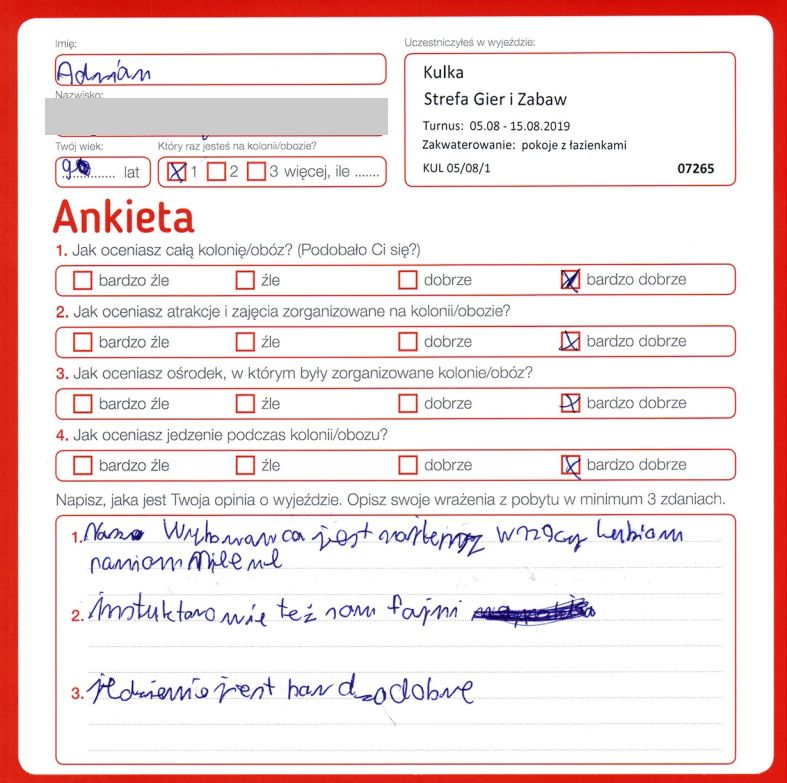 Imię:
Adrian
Nazwisko:
Twój wiek:
9 lat
Który raz jesteś na kolonii/obozie?
1 2 3 więcej, ile .......
Uczestniczyłeś w wyjeździe:
Kulka
Strefa Gier i Zabaw
Turnus: 05.08 - 15.08.2019
Zakwaterowanie: pokoje z łazienkami
KUL 05/08/1 07265
Ankieta
1. Jak oceniasz całą kolonię/obóz? (Podobało Ci się?)
bardzo źle źle dobrze bardzo dobrze
2. Jak oceniasz atrakcje i zajęcia zorganizowane na kolonii/obozie?
bardzo źle źle dobrze bardzo dobrze
3. Jak oceniasz ośrodek, w którym były zorganizowane kolonie/obóz?
bardzo źle źle dobrze bardzo dobrze
4. Jak oceniasz jedzenie podczas kolonii/obozu?
bardzo źle źle dobrze bardzo dobrze
Napisz, jaka jest Twoja opinia o wyjeździe. Opisz swoje wrażenia z pobytu w minimum 3 zdaniach.
1. Nasz jest
2. też fajni
3. jedzienie jest bardzo dobre